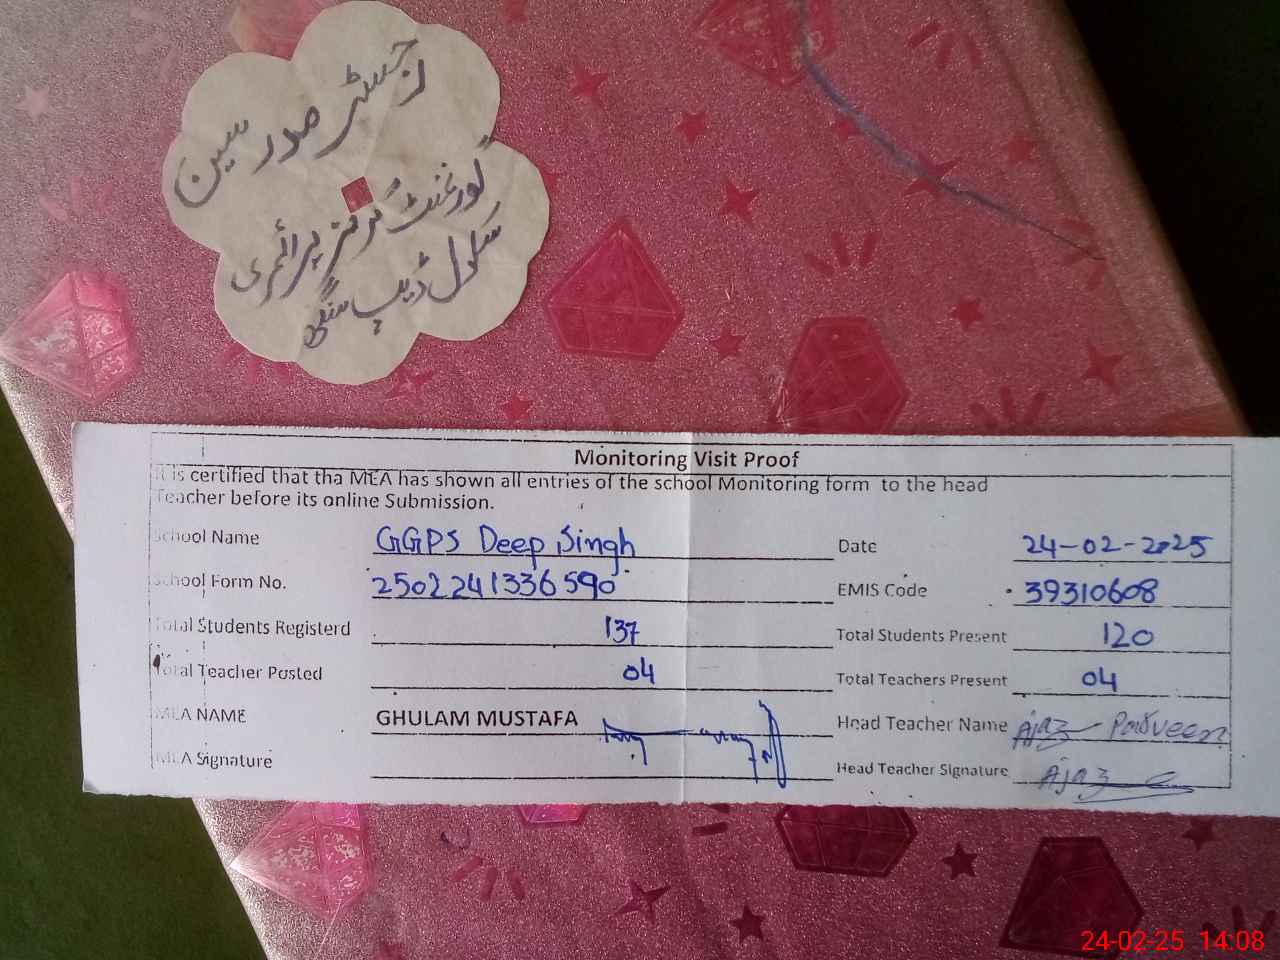 رجسٹر صدر سین
گورنمنٹ گرلز پرائمری
سکول ڈیپ سنگھ
Monitoring Visit Proof
It is certified that tha MEA has shown all entries of the school Monitoring form to the head
Teacher before its online Submission.
School Name GGPS Deep Singh Date 24-02-2025
School Form No. 2502241336590 EMIS Code 39310608
Total Students Registerd 137 Total Students Present 120
Total Teacher Posted 04 Total Teachers Present 04
MEA NAME GHULAM MUSTAFA Head Teacher Name Ajaz Parveen
MEA Signature Head Teacher Signature Ajaz
24-02-25 14:08